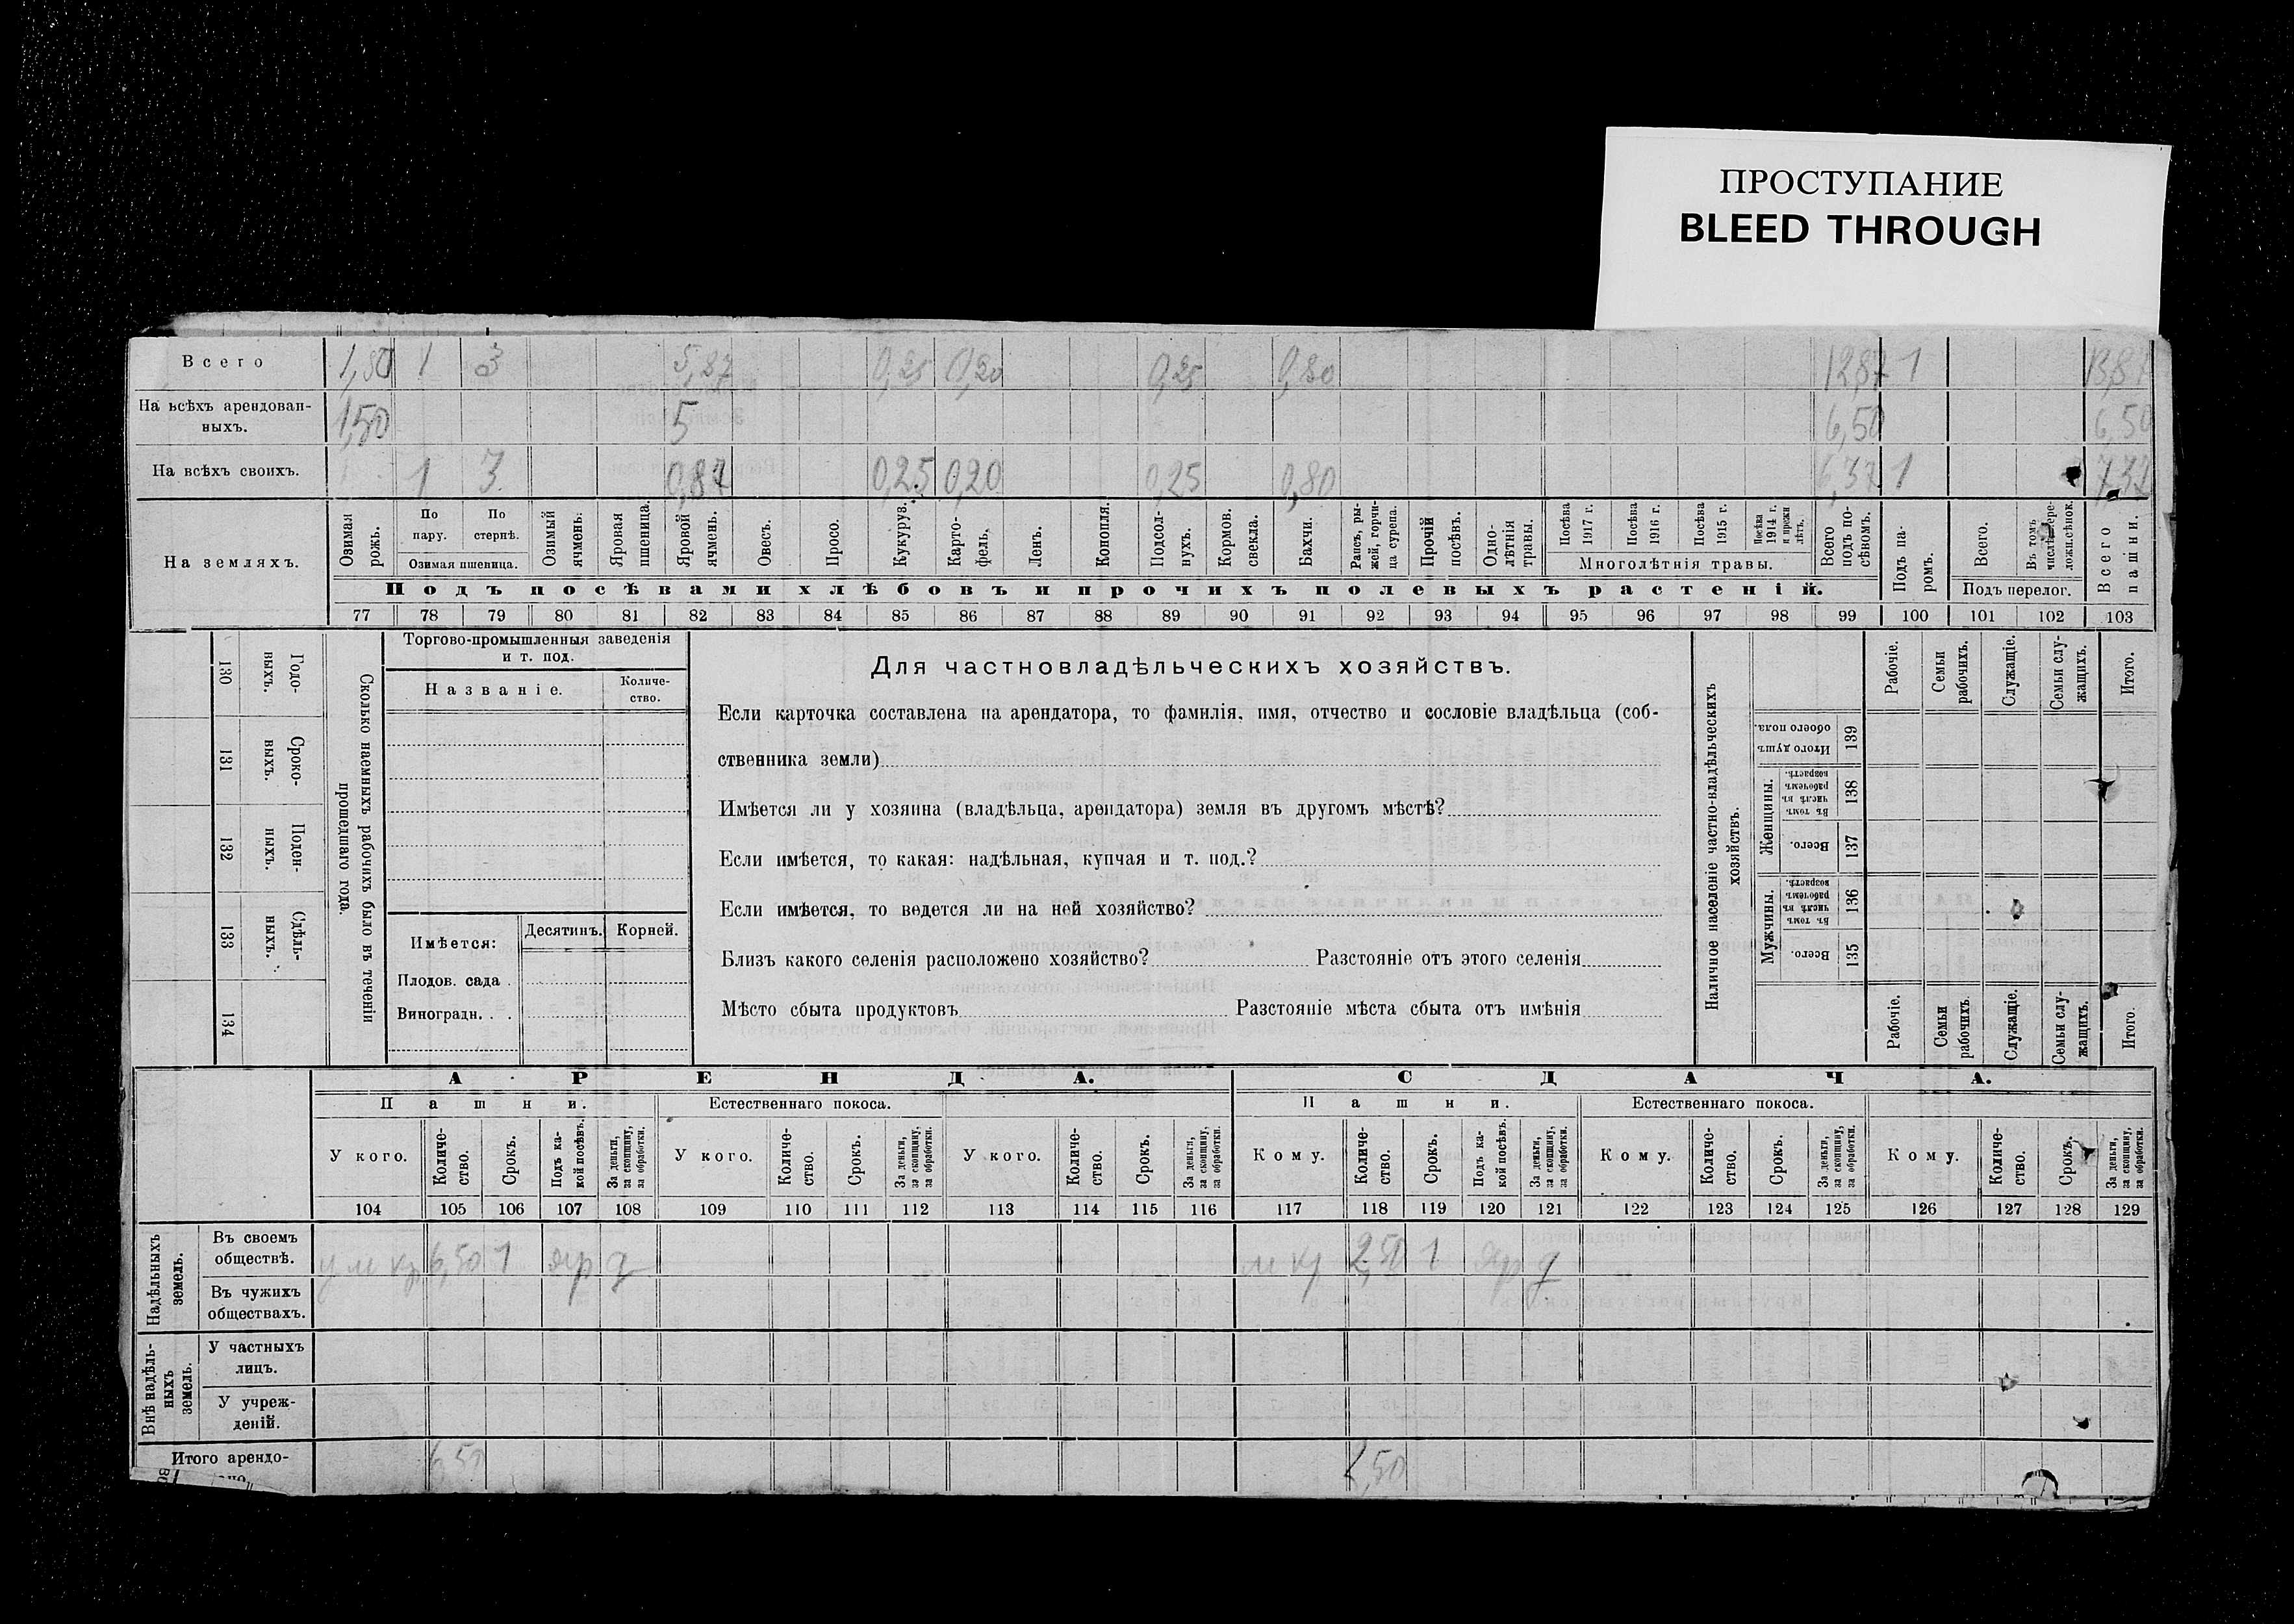 ПРОСТУПАНИЕ
BLEED THROUGH
Всего 1,50 1 3 5,87 0,25 0,20 0,25 0,80 12,87 1 13,87
На всѣхъ арендован-
ныхъ. 1,50 5 6,50 6,50
На всѣхъ своихъ. 1 3 0,87 0,25 0,20 0,25 0,80 6,37 1 7,37
На земляхъ.
Озимая рожь.
По пару.
По стернѣ.
Озимая пшеница.
Озимый ячмень.
Яровая пшеница.
Яровой ячмень.
Овесъ.
Просо.
Кукуруз.
Карто-
фель.
Ленъ.
Конопля.
Подсол-
нухъ.
Кормов. свекла.
Бахчи.
Рапсъ, ры-
жей, горчи-
ца сурепа.
Прочій посѣвъ.
Одно-
лѣтнія травы.
Посѣва 1917 г.
Посѣва 1916 г.
Посѣва 1915 г.
Посѣва 1914 г. и прежн лѣтъ.
Многолѣтнія травы.
Всего подъ по-
сѣвомъ.
Подъ па-
ромъ.
Всего.
Въ томъ
Подъ перелог.
Всего пашни.
Подъ посѣвами хлѣбовъ и прочихъ полевыхъ растеній.
77 78 79 80 81 82 83 84 85 86 87 88 89 90 91 92 93 94 95 96 97 98 99 100 101 102 103
130 Годо-
выхъ.
131 Сроко-
выхъ.
132 Поден-
ныхъ.
133 Сдѣль-
ныхъ.
134
Сколько наемныхъ рабочихъ было въ теченіи
прошедшаго года.
Торгово-промышленныя заведенія
и т. под.
Названіе.
Количе-
ство.
Имѣется:
Десятинъ.
Корней.
Плодов. сада .
Виноградн. . .
Для частновладѣльческихъ хозяйствъ.
Если карточка составлена на арендатора, то фамилія, имя, отчество и сословіе владѣльца (соб-
ственника земли)
Имѣется ли у хозяина (владѣльца, арендатора) земля въ другомъ мѣстѣ?
Если имѣется, то какая: надѣльная, купчая и т. под.?
Если имѣется, то ведется ли на ней хозяйство?
Близъ какого селенія расположено хозяйство? Разстояніе отъ этого селенія
Мѣсто сбыта продуктовъ Разстояніе мѣста сбыта отъ имѣнія
Наличное населеніе частно-владѣльческихъ
хозяйствъ.
Рабочіе.
Семьи рабочихъ.
Служащіе.
Семьи слу-
жащихъ.
Итого.
Итого душъ обоего пола. 139
Женщины.
Въ томъ числѣ въ рабочемъ возрастѣ. 138
Всего. 137
Мужчины.
Въ томъ числѣ въ рабочемъ возрастѣ. 136
Всего. 135
Рабочіе.
Семьи рабочихъ.
Служащіе.
Семьи слу-
жащихъ.
Итого.
АРЕНДА. СДАЧА.
Пашни. Естественнаго покоса. Пашни. Естественнаго покоса.
У кого.
Количе-
ство.
Срокъ.
Подъ ка-
кой посѣвъ.
За деньги, за скопщину, за обработки.
У кого.
Количе-
ство.
Срокъ.
За деньги, за скопщину, за обработки.
У кого.
Количе-
ство.
Срокъ.
За деньги, за скопщину, за обработки.
Кому.
Количе-
ство.
Срокъ.
Подъ ка-
кой посѣвъ.
За деньги, за скопщину, за обработки.
Кому.
Количе-
ство.
Срокъ.
За деньги, за скопщину, за обработки.
Кому.
Количе-
ство.
Срокъ.
За деньги, за скопщину, за обработки.
104 105 106 107 108 109 110 111 112 113 114 115 116 117 118 119 120 121 122 123 124 125 126 127 128 129
Надѣльныхъ земель.
Въ своемъ
обществѣ. у м кр 6,50 1 яр д м кр 2,50 1 яр д
Въ чужихъ
обществахъ.
Внѣ надѣль-
ныхъ земель.
У частныхъ
лицъ.
У учреж-
деній.
Итого арендо- 6,50 2,50